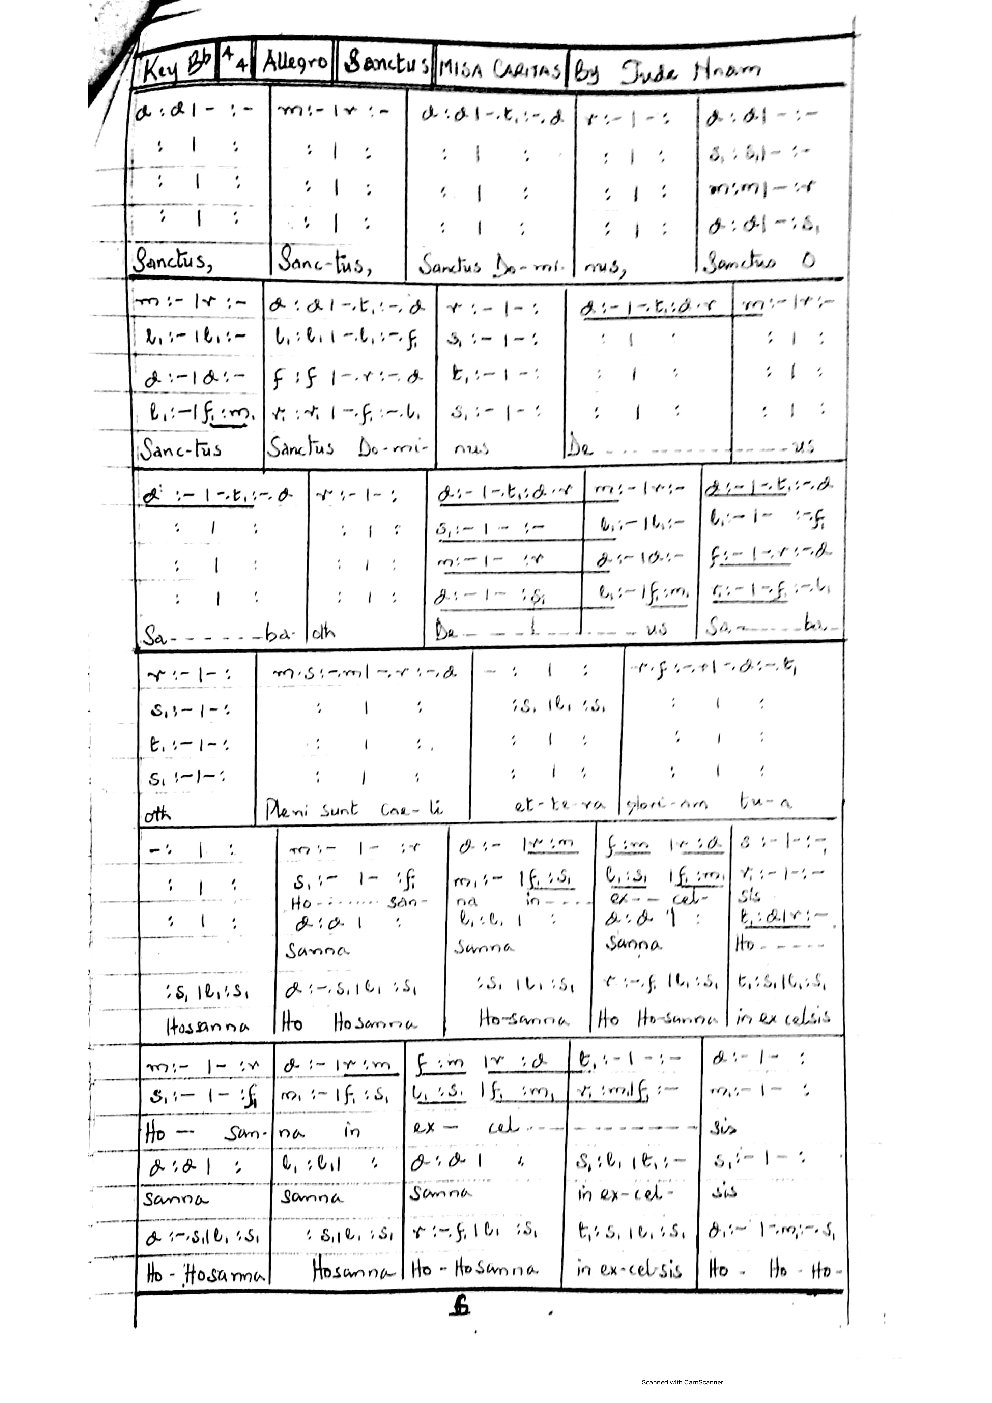 Key Bb 4/4 Allegro Sanctus MISA CARITAS By Jude Nnam
d :d | - :- m :- | r :- d :d | -.t, :-.d r :- | - : d :d | - :-
: | : : | : : | : : | : s, :s, | - :-
: | : : | : : | : : | : m :m | - :r
: | : : | : : | : : | : d :d | - :s,
Sanctus, Sanc-tus, Sanctus Do-mi- nus, Sanctus O
m :- | r :- d :d | -.t, :-.d r :- | - : d :- | -.t, :d.r m :- | r :-
l, :- | l, :- l, :l, | -.l, :-.f, s, :- | - : : | : : | :
d :- | d :- f :f | -.r :-.d t, :- | - : : | : : | :
l, :- | f, :m, r, :r, | -.f, :-.l, s, :- | - : : | : : | :
Sanc-tus Sanctus Do-mi- nus De - - - - - us
d :- | -.t, :-.d r :- | - : d :- | -.t, :d.r m :- | r :- d :- | -.t, :-.d
: | : : | : s, :- | - :- l, :- | l, :- l, :- | - :-.f,
: | : : | : m :- | - :r d :- | d :- f :- | -.r :-.d
: | : : | : d :- | - :s, l, :- | f, :m, r, :- | -.f, :-.l,
Sa - - - - - ba- oth De - - - - - us Sa - - - ba-
r :- | - : m.s :-.m | -.r :-.d - : | : r.f :-.r | -.d :-.t,
s, :- | - : : | : :s, | l, :s, : | :
t, :- | - : : | : : | : : | :
s, :- | - : : | : : | : : | :
oth Pleni sunt Cae-li et-te-ra glori-am tu-a
- : | : m :- | - :r d :- | r :m f :m | r :d s :- | - :-
: | : s, :- | - :f, m, :- | f, :s, l, :s, | f, :m, r, :- | - :-
Ho - - - - san- na in - - - ex - - cel- sis
: | : d :d | : l, :l, | : d :d | : t, :d | r :-
Sanna Sanna Sanna Ho - - - - -
:s, | l, :s, d :-.s, | l, :s, :s, | l, :s, r :-.f, | l, :s, t, :s, | l, :s,
Hossanna Ho Hosanna Ho-sanna Ho Ho-sanna in excelsis
m :- | - :r d :- | r :m f :m | r :d t, :- | - :- d :- | - :
s, :- | - :f, m, :- | f, :s, l, :s, | f, :m, r, :m, | f, :- m, :- | - :
Ho — San- na in ex — cel - - - - - - - - sis
d :d | : l, :l, | : d :d | : s, :l, | t, :- s, :- | - :
Sanna Sanna Sanna in ex-cel- sis
d :-.s, | l, :s, :s, | l, :s, r :-.f, | l, :s, t, :s, | l, :s, d, :- | -.m, :-.s,
Ho - Hosanna Hosanna Ho - Hosanna in ex-cel-sis Ho - Ho - Ho-
Scanned with CamScanner